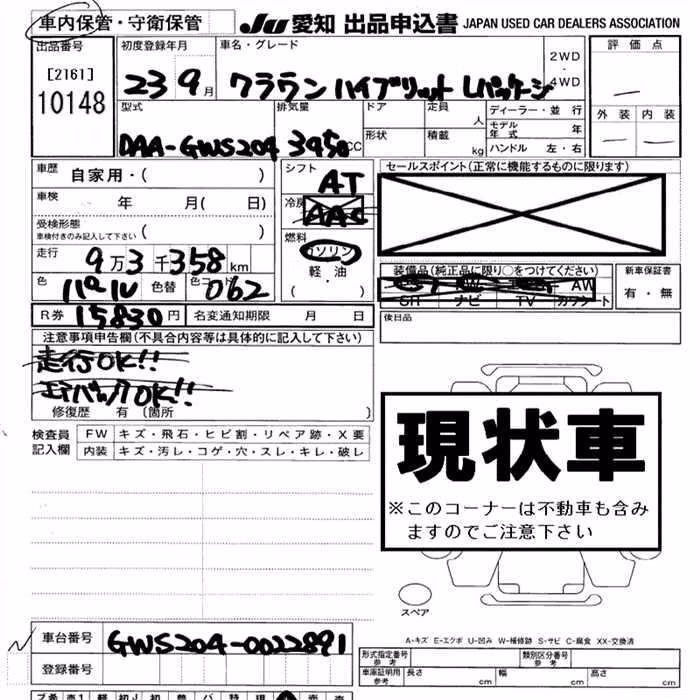 車内保管・守衛保管 JU 愛知 出品申込書 JAPAN USED CAR DEALERS ASSOCIATION
出品番号 初度登録年月 車名・グレード 評価点
[2161] 23 9月 クラウン ハイブリット Lパッケージ 2WD・4WD
10148 型式 排気量 ドア 定員 人 ディーラー・並行 外装 内装
DAA-GWS204 3450cc 形状 積載 kg モデル年式 年 ハンドル 左・右
車歴 自家用・( ) シフト AT セールスポイント(正常に機能するものに限ります)
車検 年 月( 日) 冷房 AAC
受検形態 車検付きのみ記入して下さい ( ) 燃料 ガソリン
走行 9万3千358km 軽・油 装備品(純正品に限り○をつけてください) 新車保証書
色 パール 色替 色コード 062 ( ) AW 有・無
SR ナビ TV カワシート
R券 15830円 名変通知期限 月 日 後日品
注意事項申告欄(不具合内容等は具体的に記入して下さい)
走行OK!!
エアバックOK!!
修復歴 有 〔箇所 〕
検査員記入欄 FW キズ・飛石・ヒビ割・リペア跡・X要
内装 キズ・汚レ・コゲ・穴・スレ・キレ・破レ
現状車
※このコーナーは不動車も含み
ますのでご注意下さい
スペア
A-キズ E-エクボ U-凹み W-補修跡 S-サビ C-腐食 XX-交換済
車台番号 GWS204-0022891 形式指定番号 参考 類別区分番号 参考
登録番号 車庫証明用 参考 長さ cm 幅 cm 高さ cm